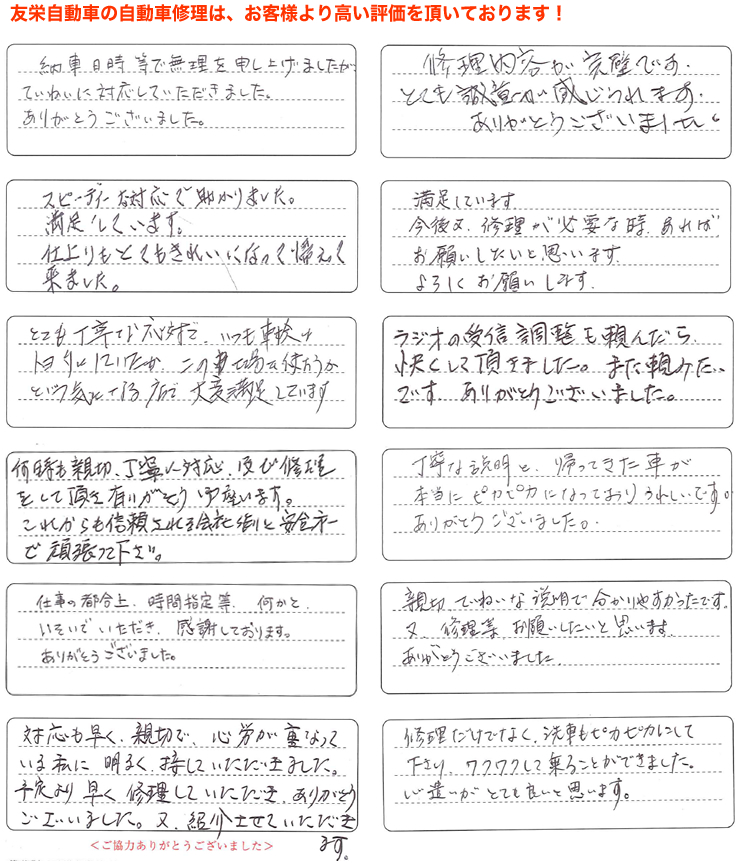 友栄自動車の自動車修理は、お客様より高い評価を頂いております！
納車日時等で無理を申し上げましたが
ていねいに対応していただきました。
ありがとうございました。
修理内容が完璧です.
とても誠意が感じられます.
ありがとうございました。
スピーディーな対応で助かりました。
満足しています。
仕上りもとてもきれいになって帰えって
来ました。
満足しています.
今後又、修理が必要な時、あれば
お願いしたいと思います.
よろしくお願いします.
とても丁寧な応対で、いつも車検は
トヨタにしていたが、この車工場を使おうか
という気になる店で大変満足しています
ラジオの受信調整も頼んだら、
快くして頂きました。また頼みたい
です。ありがとうございました。
何時も親切、丁寧に対応、及び修理
をして頂き有りがとう御座います。
これからも信頼される会社
で頑張って下さい。
丁寧な説明と、帰ってきた車が
本当にピカピカになっておりうれしいです。
ありがとうございました。
仕事の都合上、時間指定等、何かと、
いそいでいただき、感謝しております。
ありがとうございました。
親切、ていねいな説明で分かりやすかったです。
又、修理等、お願いしたいと思います.
ありがとうございました.
対応も早く、親切で、心労が重なって
いる私に明るく接していただきました。
予定より早く修理していただき、ありがとう
ございました。又、紹介させていただき
ます。
修理だけでなく、洗車もピカピカにして
下さり、ワクワクして乗ることができました。
心遣いがとても良いと思います。
＜ご協力ありがとうございました＞